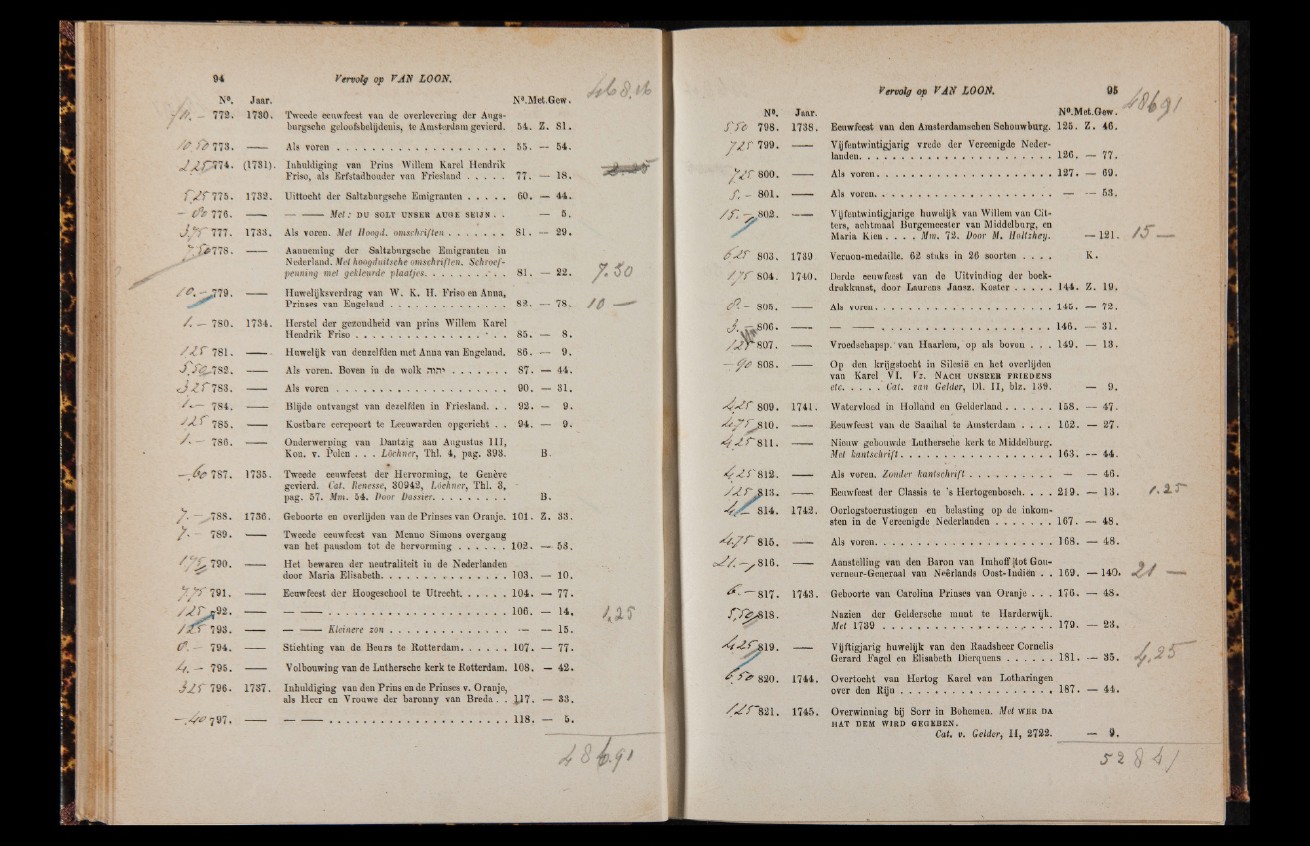 94 Vervolg op VAN LOON.
N°. Jaar. N°.Met.Gew.
772. 1730. Tweede eeuwfeest van de overlevering der Augs-
burgsche geloofsbelijdenis, te Amsterdam gevierd. 54. Z. 81.
10.50 773. —— Als voren . . . . . . . . . . 55. — 54.
2.25 774. (1731). Inhuldiging van Prins Willem Karel Hendrik
Friso, als Erfstadhouder van Friesland . . . . . 77. — 18.
5.25 775. 1732. Uittocht der Saltzburgsche Emigranten . . . . . 60. — 44.
—.80 776. —— — —— Met: DU SOLT UNSER AUGE SEIJN . . — 5.
3.75 777. 1733. Als voren. Met Hoogd. omschriften . . . . . . . 81. — 29.
7.50 778. —— Aanneming der Saltzburgsche Emigranten in
Nederland. Met hoogduitsche omschriften. Schroef-
penning met gekleurde plaatjes. . . . . . . . . . 81. — 22. 7.50
10.— 779. —— Huwelijksverdrag van W. K. H. Friso en Anna,
Prinses van Engeland . . . . . . . . . . . . . 82. — 78. 10 —
1.— 780. 1734. Herstel der gezondheid van prins Willem Karel
Hendrik Friso . . . . . . . . . . . . . . . . . 85. — 8.
1.25 781. —— Huwelijk van denzelfden met Anna van Engeland. 86. — 9.
5.50 782. —— Als voren. Boven in de wolk יהוה . . . . . . . 87. — 44.
3.25 783. —— Als voren . . . . . . . . . . . . . . . . . . . 90. — 31.
1.— 784. —— Blijde ontvangst van dezelfden in Friesland. . . 92. — 9.
1.25 785. —— Kostbare eerepoort te Leeuwarden opgericht . . 94. — 9.
1.— 786. —— Onderwerping van Dantzig aan Augustus III,
Kon. v. Polen . . . Löchner, Thl. 4, pag. 393. B.
—.60 787. 1735. Tweede eeuwfeest der Hervorming, te Genève
gevierd. Cat. Renesse, 30942, Löchner, Thl. 3,
pag. 57. Mm. 54. Door Dassier. . . . . . . . . B.
7.— 788. 1736. Geboorte en overlijden van de Prinses van Oranje. 101. Z. 33.
7.— 789. —— Tweede eeuwfeest van Menno Simons overgang
van het pausdom tot de hervorming . . . . . . 102. — 53.
1.75 790. —— Het bewaren der neutraliteit in de Nederlanden
door Maria Elisabeth. . . . . . . . . . . . . . . 103. — 10.
7.75 791. —— Eeuwfeest der Hoogeschool te Utrecht. . . . . . 104. — 77.
1.25 792. —— — —— . . . . . . . . . . . . . . . . . . . . 106. — 14. 1,25
1.25 793. —— — —— Kleinere zon . . . . . . . . . . . . . — — 15.
8.— 794. —— Stichting van de Beurs te Rotterdam. . . . . . . 107. — 77.
4.— 795. —— Volbouwing van de Luthersche kerk te Rotterdam. 108. — 42.
3.25 796. 1737. Inhuldiging van den Prins en de Prinses v. Oranje,
als Heer en Vrouwe der baronny van Breda . . 117. — 33.
—.40 797. —— — —— . . . . . . . . . . . . . . . . . . . . 118. — 5.
486.91
Vervolg op VAN LOON. 95
486,91
N°. Jaar. N°.Met.Gew.
5.50 798. 1738. Eeuwfeest van den Amsterdamschen Schouwburg. 125. Z. 46.
7.25 799. —— Vijfentwintigjarig vrede der Vereenigde Neder-
landen. . . . . . . . . . . . . . . . . . . . . . 126. — 77.
7.25 800. —— Als voren. . . . . . . . . . . . . . . . . . . . 127. — 69.
5.— 801. —— Als voren. . . . . . . . . . . . . . . . . . . . — — 53.
15.— 802. —— Vijfentwintigjarige huwelijk van Willem van Cit-
ters, achtmaal Burgemeester van Middelburg, en
Maria Kien . . . . Mm. 72. Door M. Holtzhey. — 121. 15 —
6.25 803. 1739. Vernon-medaille. 62 stuks in 26 soorten . . . . K.
1.75 804. 1740. Derde eeuwfeest van de Uitvinding der boek-
drukkunst, door Laurens Jansz. Koster . . . . . 144. Z. 19.
8.— 805. —— Als voren. . . . . . . . . . . . . . . . . . . . 145. — 72.
3.— 806. —— — —— . . . . . . . . . . . . . . . . . . . . 146. — 31.
1.25 807. —— Vroedschapsp. van Haarlem, op als boven . . . 149. — 13.
—.90 808. —— Op den krijgstocht in Silesië en het overlijden
van Karel VI. Vz. NACH UNSRER FRIEDENS
etc. . . . . Cat. van Gelder, Dl. II, blz. 139. — 9.
4.25 809. 1741. Watervloed in Holland en Gelderland . . . . . . 158. — 47.
4.75 810. —— Eeuwfeest van de Saaihal te Amsterdam . . . . 162. — 27.
4.25 811. —— Nieuw gebouwde Luthersche kerk te Middelburg.
Met kantschrift . . . . . . . . . . . . . . . . . 163. — 44.
4.25 812. —— Als voren. Zonder kantschrift . . . . . . . . . . — — 46.
1.25 813. —— Eeuwfeest der Classis te 's Hertogenbosch. . . . 219. — 13. 1.25
814. 1742. Oorlogstoerustingen en belasting op de inkom-
sten in de Vereenigde Nederlanden . . . . . . . 167. — 48.
4.75 815. —— Als voren. . . . . . . . . . . . . . . . . . . . 168. — 48.
21.— 816. —— Aanstelling van den Baron van Imhoff tot Gou-
verneur-Generaal van Neêrlands Oost-Indiën . . 169. — 140. 21 —
6.— 817. 1743. Geboorte van Carolina Prinses van Oranje . . . 176. — 48.
5.50 818. Nazien der Geldersche munt te Harderwijk.
Met 1739 . . . . . . . . . . . . . . . . . . . 179. — 23.
4.25 819. —— Vijftigjarig huwelijk van den Raadsheer Cornelis
Gerard Fagel en Elisabeth Dierquens . . . . . . 181. — 35. 4,25
6.50 820. 1744. Overtocht van Hertog Karel van Lotharingen
over den Rijn . . . . . . . . . . . . . . . . . 187. — 44.
1.25 821. 1745. Overwinning bij Sorr in Bohemen. Met WER DA
HAT DEM WIRD GEGEBEN.
Cat. v. Gelder, II, 2722. — 9.
528 41